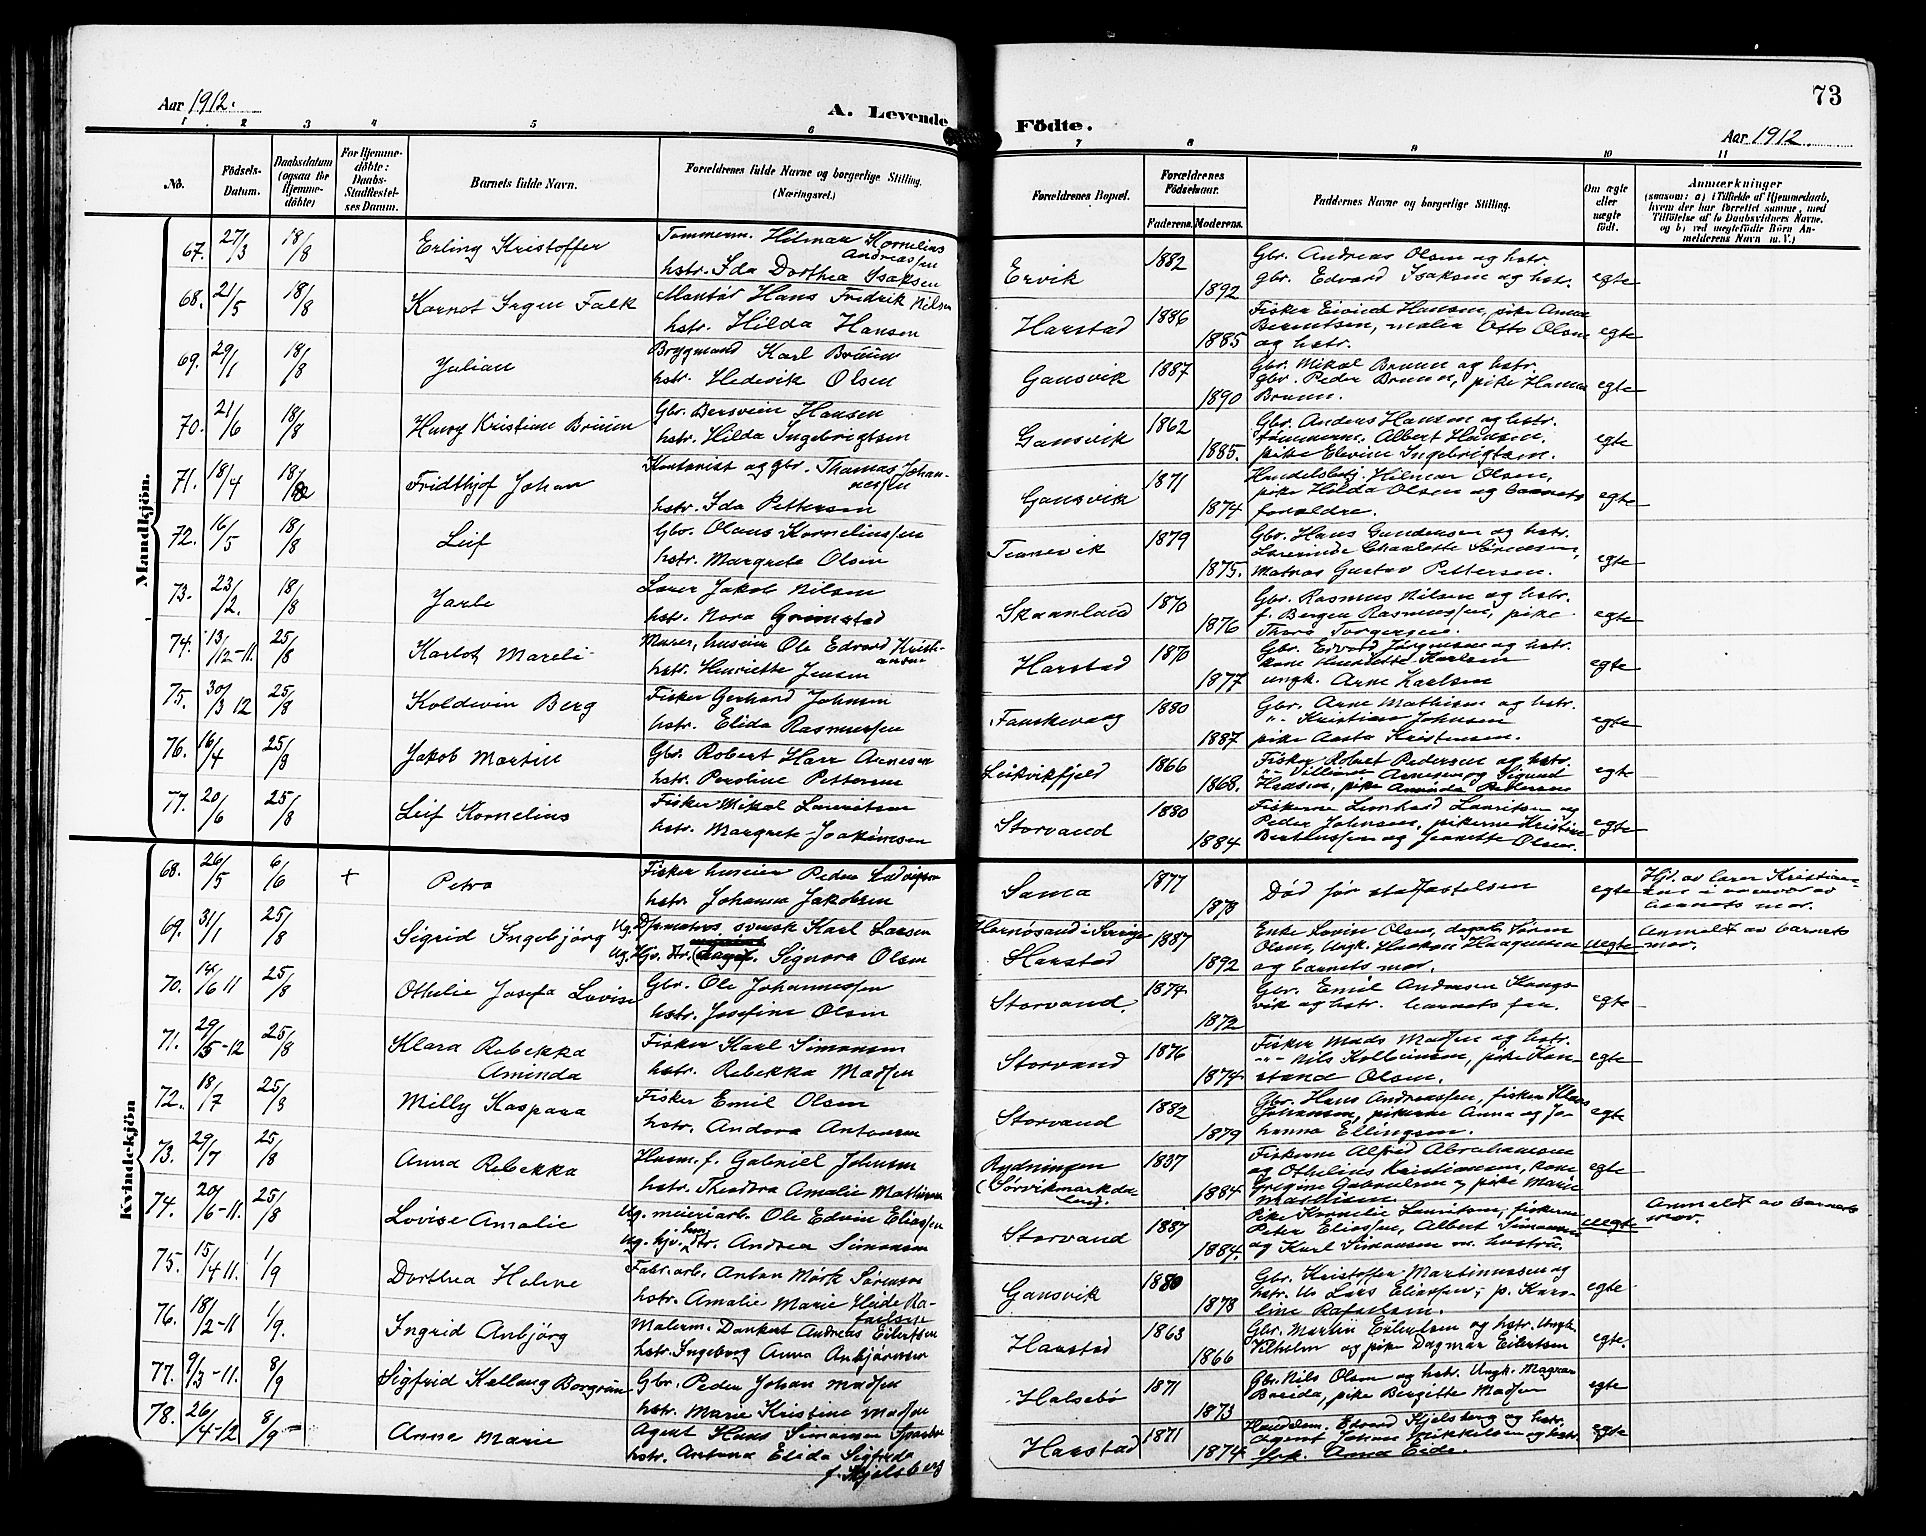 Aar 1912.
A. Levende
Födte.
73
Aar 1912.
1 2 3 4 5 6
7 8 9 10 11
No.
Födsels-Datum.
Daabsdatum (ogsaa for Hjemmedöbte)
For Hjemmedöbte: Daabs-Stadfæstelses Datum.
Barnets fulde Navn.
Forældrenes fulde Navne og borgerlige Stilling. (Næringsvei.)
Forældrenes Bopæl.
Forældrenes Födselsaar.
Faderens. Moderens.
Faddernes Navne og borgerlige Stilling.
Om ægte eller uægte födt.
Anmærkninger
(saasom: a) i Tilfælde af Hjemmedaab, hvem der har forrettet samme, med Tilföielse af to Daabsvidners Navne, og b) ved uægtefödte Börn Anmelderens Navn m. V.)
Mandkjön.
67. 27/3 18/8 Erling Kristoffer
Tømmerm. Hilmar Kornelius Andreassen
hstr. Ida Dorthea Isaksen
Ervik 1882 1892
Gbr. Andreas Olsen og hstr.
gbr. Edvard Isaksen og hstr. egte
68. 21/5 18/8 Karnot Irgen Falk
Montør Hans Fredrik Nilsen
hstr. Hilda Hansen
Harstad 1886 1885
Fisker Eivind Hansen, pike Anna
Berentsen, maler Otto Olsen
og hstr. egte
69. 29/1 18/8 Julian
Brygmand Karl Bruun
hstr. Hedevik Olsen
Gansvik 1887 1890
Gbr. Mikal Bruun og hstr.
gbr. Peder Bruun, pike Hanna
Bruun. egte
70. 21/6 18/8 Henry Kristian Bruun
Gbr. Bersvein Hansen
hstr. Hilda Ingebrigtsen
Gansvik 1862 1885.
Gbr. Anders Hansen og hstr.
tømmerm. Albert Hansen,
pike Elevine Ingebrigtsen. egte
71. 18/4 18/8 Fridthjof Johan
Kontorist og gbr. Thomas Johannessen
hstr. Ida Pettersen
Gansvik 1871 1874
Handelsbetj. Hilmar Olsen,
pike Holda Olsen og barnets
forældre. egte
72. 16/5 18/8 Leif
Gbr. Olaus Kornelinssen
hstr. Margrete Olsen
1879 1875.
Gbr. Hans Gundersen og hstr.
Lærerinde Charlotte Sørensen,
Matros Gustav Pettersen. egte
73. 23/2. 18/8 Jarle
Lærer Jakob Nilsen
hstr. Nora Grimstad
Skaanland 1870 1876
Gbr. Rasmus Nilsen og hstr.
f. Bergen Rasmussen, pike
Thora Torgersen. egte
74. 13/12-11. 25/8 Karlot Mareli
Murer, huseier Ole Edvard Kristiansen
hstr. Henriette Jensen
Harstad 1870 1877
Gbr. Edvard Jørgensen og hstr.
kone Henriette Karlsen
ungk. Arne Karlsen egte
75. 30/3 12 25/8 Koldevin Berg
Fisker Gerhard Johnsen
hstr. Elida Rasmussen
Fauskevaag 1880 1887
Gbr. Arne Mathisen og hstr.
" Kristian Johnsen
pike Aasta Kristensen. egte
76. 16/4 25/8 Jakob Martin
Gbr. Robert Harr Arnesen
hstr. Peroline Pettersen
1866 1868.
Fisker Robert Pedersen og hstr.
"- Villiam Arnesen og Sigurd
Hansen, pike Aminda Pedersen egte
77. 20/6 25/8 Leif Kornelius
Fisker Mikal Lauritsen
hstr. Margrete Joakimsen
Storvand 1880 1884
Fiskerne Leonhard Lauritsen og
Peder Johnsen, pikerne Kristine
Berthinssen og Jeanette Olsen. egte
Kvindekjön
68. 26/5 6/6 + Petra
Fisker huseier Peder Ludvigsen
hstr. Johanna Jakobsen
Sama 1877 1878
Død før stadfæstelsen egte
Hjd. av lærer Kristiansen i nærvær av
barnets mor.
69. 31/1 25/8 Sigrid Ingebjørg
Ug. svensk Karl Larsen
Ug. Hjv. str. Signora Olsen
Hernøsand i Sverige Harstad 1887 1892
Enke Lovise Olsen, Søren
Olsen, Ungk. Haakon Haagensen
og barnets mor. uegte
Anmeldt av barnets
mor.
70. 14/6 11 25/8 Othelie Josefa Lovise
Gbr. Ole Johannessen
hstr. Josefine Olsen
Storvand. 1874 1872
Gbr. Emil Andersen Kongsvik og hstr. barnets far egte
71. 29/5-12 25/8 Klara Rebekka
Aminda
Fisker Karl Simonsen
hstr. Rebekka Madsen
Storvand 1876 1874
Fisker Mads Madsen og hstr.
-"- Nils Kolbeinsen, pike Konstance Olsen. egte
72. 18/7 25/8 Milly Kaspara
Fisker Emil Olsen
hstr. Andora Antonsen
Storvand 1882 1879
Gbr. Hans Andreassen, fisker Klaus
Johansen, pikerne Anna og Johanna Ellingsen. egte
73. 29/7 25/8 Anna Rebekka
Husm. f. Gabriel Johnsen
hstr. Theodora Amalie Mathisen
Rydningen
(Sørvikmarkdaland.) 1837 1884
Fiskerne Alfred Abrahamsen
og Othelius Kristiansen, kone
Gregine Gabrielsen og pike Marie
Mathisen egte
74. 20/6-11. 25/8 Lovise Amalie
Ug. meieriarb. Ole Edvin Eliassen
Ug. hjv. str. Andrea Simonsen
Storvand 1887 1884.
Pike Kornelie Lauritsen, fiskerne
Peter Eliassen, Albert Simonsen
og Karl Simonsen m. hustru. uegte
Anmeldt av barnets
mor.
75. 15/4-11. 1/9 Dorthea Helene
Fabr. arb. Anton Mørk Sørensen
hstr. Amalie Marie Heide Rafaelsen
Gansvik 1880 1878
Gbr. Kristoffer Martinussen og
hstr. Us Lars Eliassen, p. Karoline Rafaelsen. egte
76. 18/2-11 1/9. Ingrid Anbjørg
Malerm. Dankert Andreas Eilertsen
hstr. Ingeborg Anna Anbjørnsen
Harstad 1863 1866
Gbr. Martin Eilertsen og hstr. Ungk.
Vilhelm og pike Dagmar Eilertsen egte.
77. 9/3-11. 8/9 Sigfrid Kellaug Borgrun
Gbr. Peder Johan Madsen
hstr. Marie Kristine Madsen
Halsebø 1871 1873
Gbr. Nils Olsen og hstr. Ungk. Magnar
Breida, pike Bergitte Madsen egte
78. 26/4-12 8/9 Anne Marie
Agent Hans Simonsen
hstr. Antona Elida Sigfrida
f. Kjelsberg
Harstad 1871 1874
Handelsm. Edvard Kjelsberg og hstr.
agent Johan Mikkelsen og hstr.
frk. Anna Eide. egte